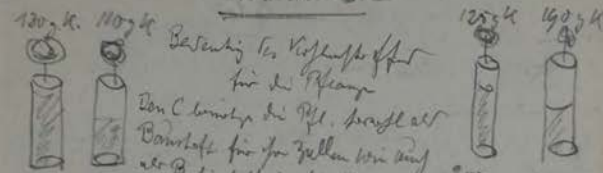 120 g K. 110 g K 125 g K 190 g K
Bedeutung des Kohlenstoffes
für die Pflanze
Den C benötigt die Pfl. sowohl als
Baustoff für ihre Zellen wie auch
als